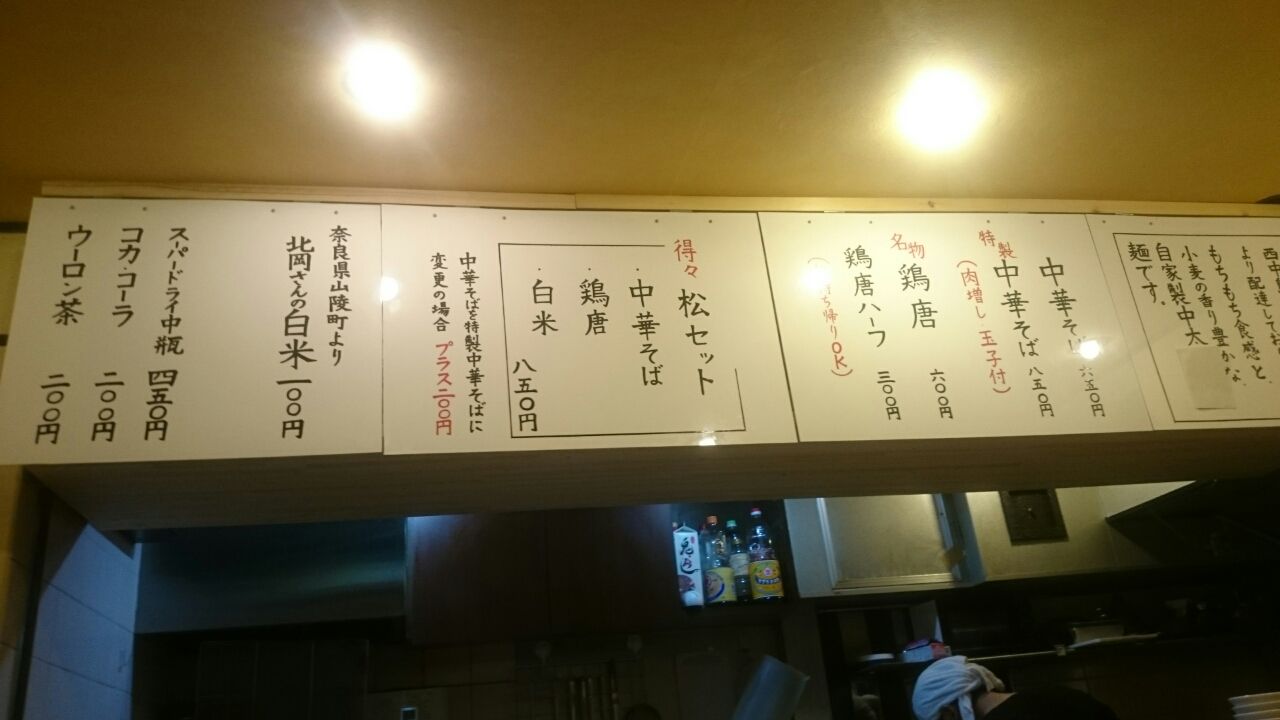 より配達してお
もちもち食感と、
小麦の香り豊かな、
自家製中太
麺です。
中華そば 六五〇円
特製中華そば 八五〇円
(肉増し 玉子付)
名物鶏唐 六〇〇円
鶏唐ハーフ 三〇〇円
ち帰りOK)
得々松セット
・中華そば
・鶏唐
・白米
八五〇円
中華そばを特製中華そばに
変更の場合 プラス二〇〇円
奈良県山陵町より
北岡さんの白米 一〇〇円
スパードライ中瓶 四五〇円
コカ・コーラ 二〇〇円
ウーロン茶 二〇〇円